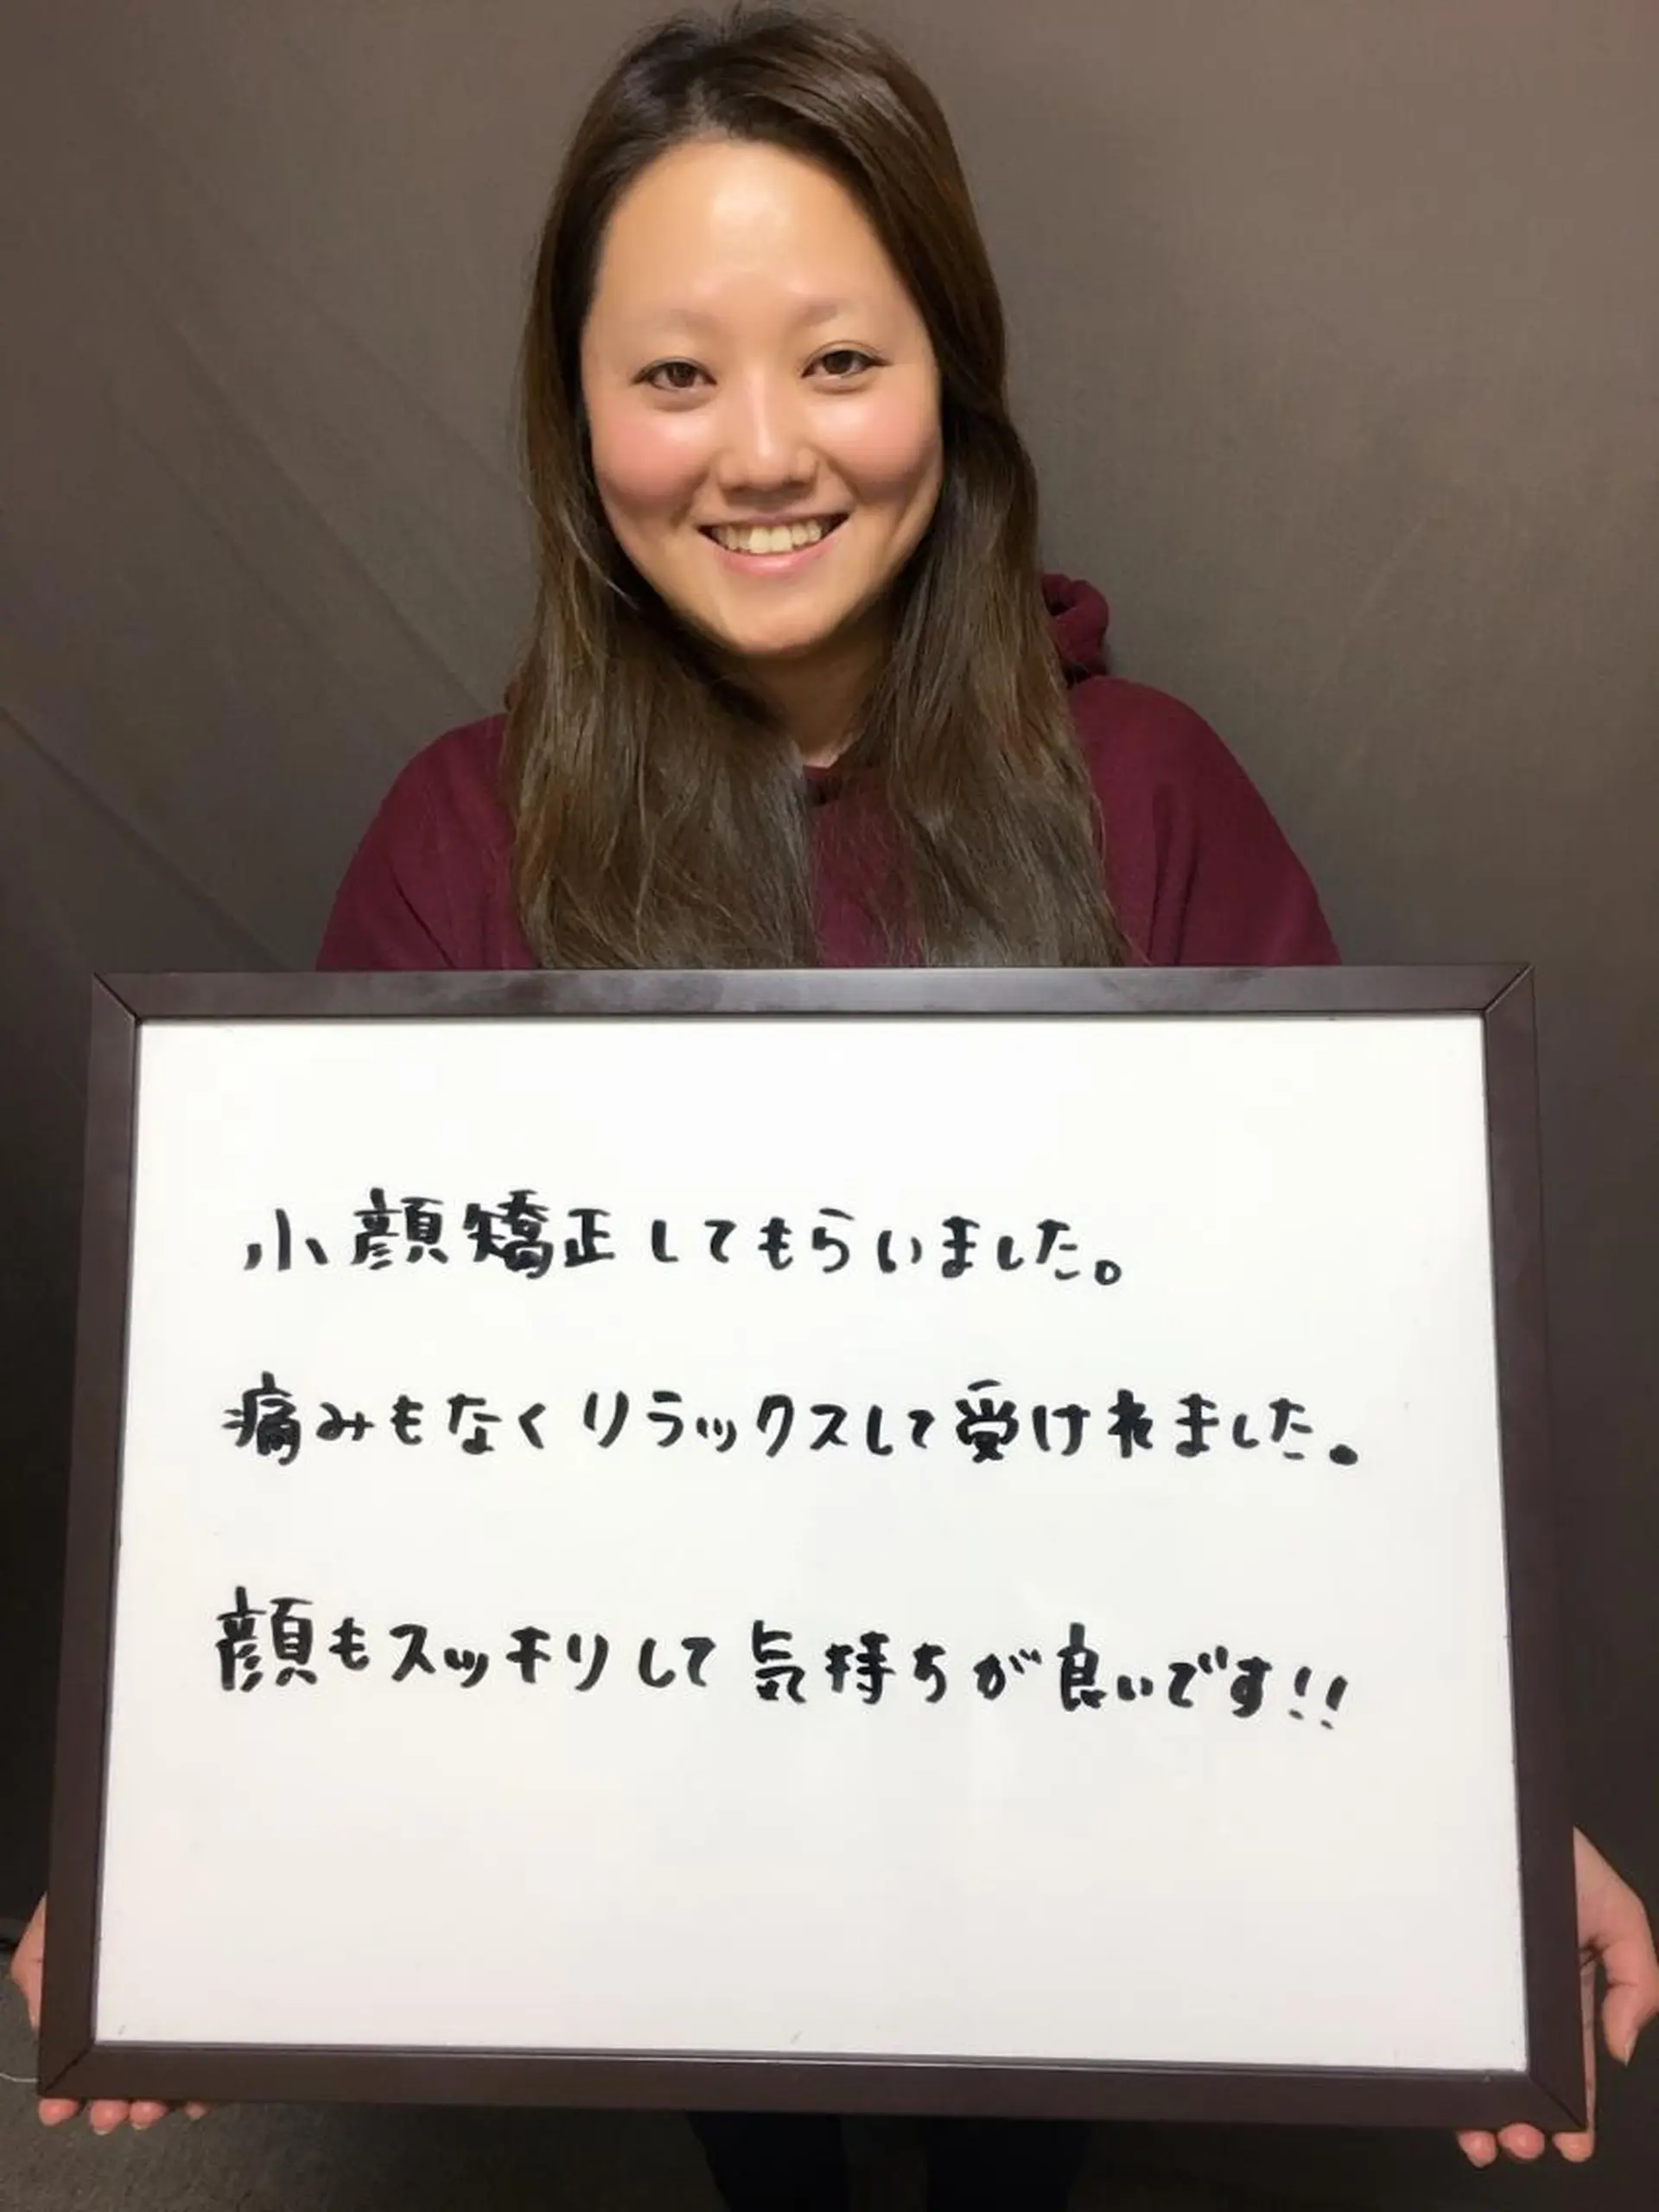 小顔矯正してもらいました。
痛みもなくリラックスして受けれました。
顔もスッキリして気持ちが良いです!!